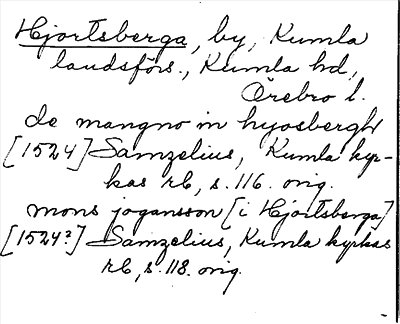 Hjortsberga, by, Kumla
landsförs., Kumla hd,
Örebro l.
de mangno in hyosbergh
[1524] Samzelius, Kumla kyr-
kas rb, s. 116. orig.
mons jogansson [i Hjortsberga]
[1524?] Samzelius, Kumla kyrkas
rb, s. 118. orig.